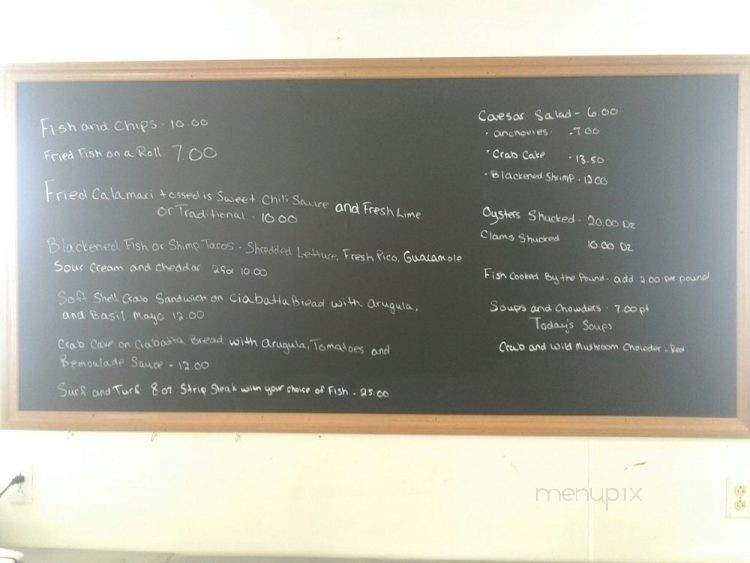 Fish and Chips - 10.00
Fried Fish on a Roll 7.00
Fried Calamari tossed is Sweet Chili Sauce and Fresh Lime
or Traditional - 10.00
Blackened Fish or Shrimp Tacos - Shredded Lettuce, Fresh Pico, Guacamole
Sour Cream and Cheddar 2 for 10.00
Soft Shell Crab Sandwich on Ciabatta Bread with Arugula,
and Basil Mayo 12.00
Crab Cake on Ciabatta Bread with Arugula, Tomatoes and
Remoulade Sauce - 12.00
Surf and Turf 8 oz Strip Steak with your choice of Fish - 25.00
Caesar Salad - 6.00
• anchovies - 7.00
• Crab Cake - 13.50
• Blackened Shrimp - 12.00
Oysters Shucked - 20.00 Dz
Clams Shucked 10.00 Dz
Fish Cooked By the Pound - add 2.00 per pound
Soups and Chowders - 7.00 pt
Today's Soups
Crab and Wild Mushroom Chowder -
menupix